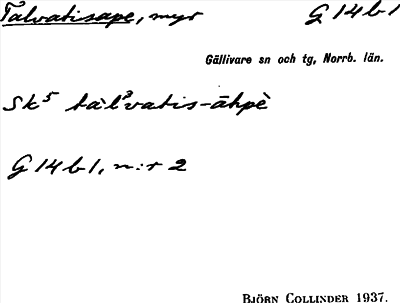 Talvatisape, myr G 14 b 1
Gällivare sn och tg, Norrb. län.
Sk⁵ tàl³vatis-āhpè
G 14 b 1, n:r 2
BJÖRN COLLINDER 1937.